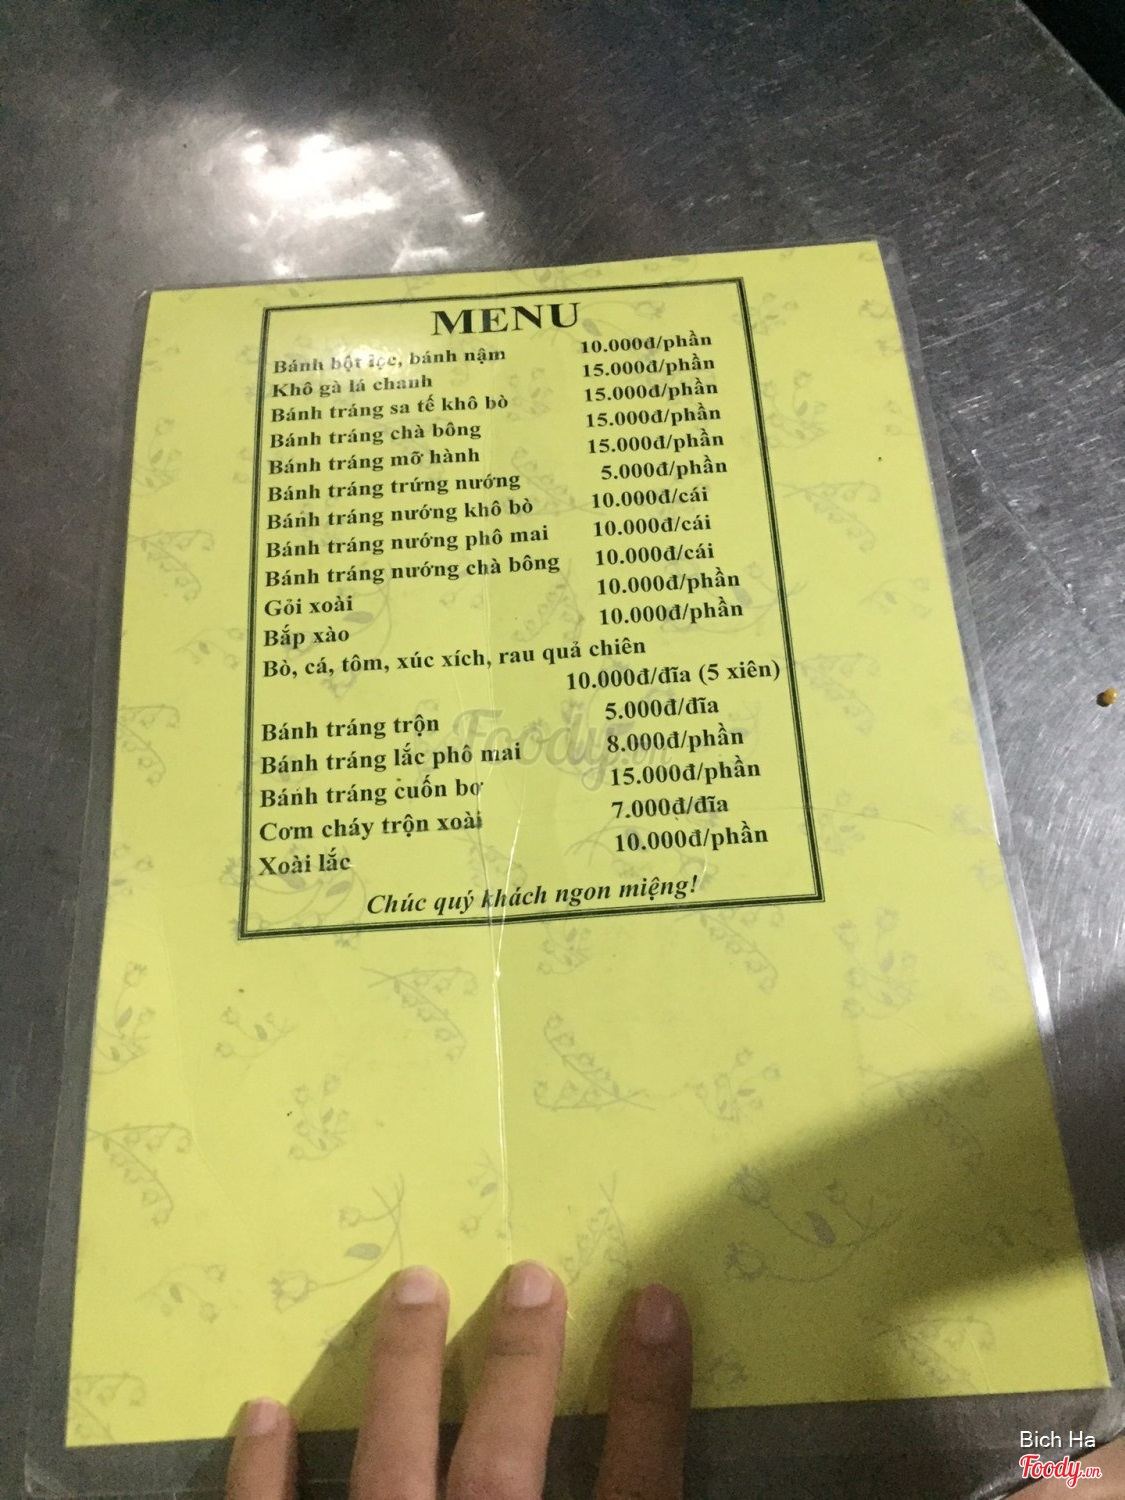 MENU
Bánh bột lọc, bánh nậm 10.000đ/phần
Khô gà lá chanh 15.000đ/phần
Bánh tráng sa tế khô bò 15.000đ/phần
Bánh tráng chà bông 15.000đ/phần
Bánh tráng mỡ hành 15.000đ/phần
Bánh tráng trứng nướng 5.000đ/phần
Bánh tráng nướng khô bò 10.000đ/cái
Bánh tráng nướng phô mai 10.000đ/cái
Bánh tráng nướng chà bông 10.000đ/cái
Gỏi xoài 10.000đ/phần
Bắp xào 10.000đ/phần
Bò, cá, tôm, xúc xích, rau quả chiên
10.000đ/đĩa (5 xiên)
Bánh tráng trộn 5.000đ/đĩa
Bánh tráng lắc phô mai 8.000đ/phần
Bánh tráng cuốn bơ 15.000đ/phần
Cơm cháy trộn xoài 7.000đ/đĩa
Xoài lắc 10.000đ/phần
Chúc quý khách ngon miệng!
Foody.vn
Bich Ha
Foody.vn